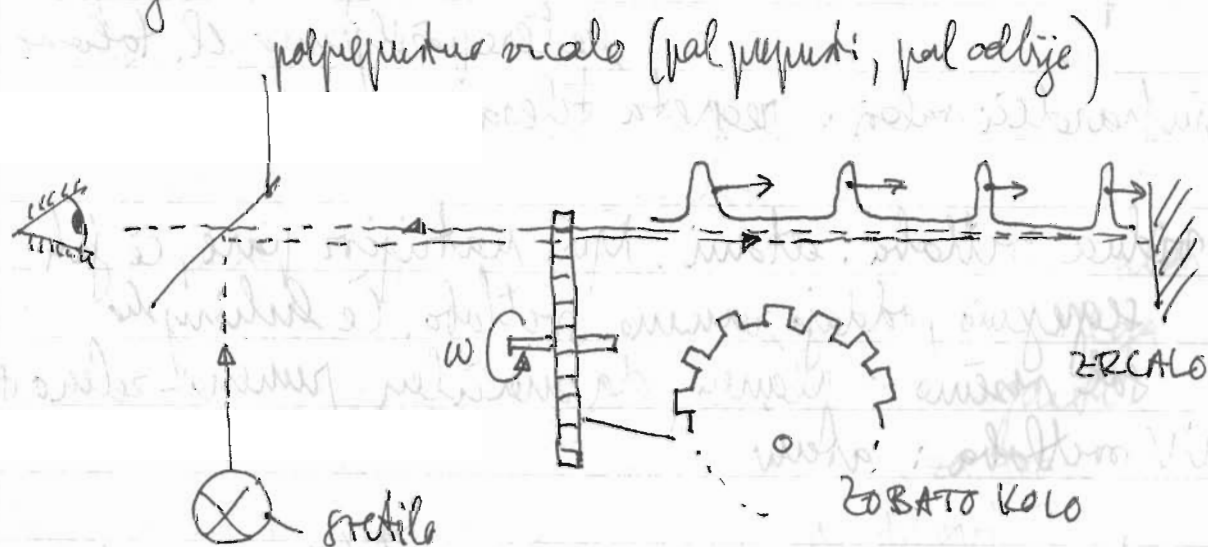 polprepustno zrcalo (pol prepusti, pol odbije)
ω
ZRCALO
ZOBATO KOLO
svetilo